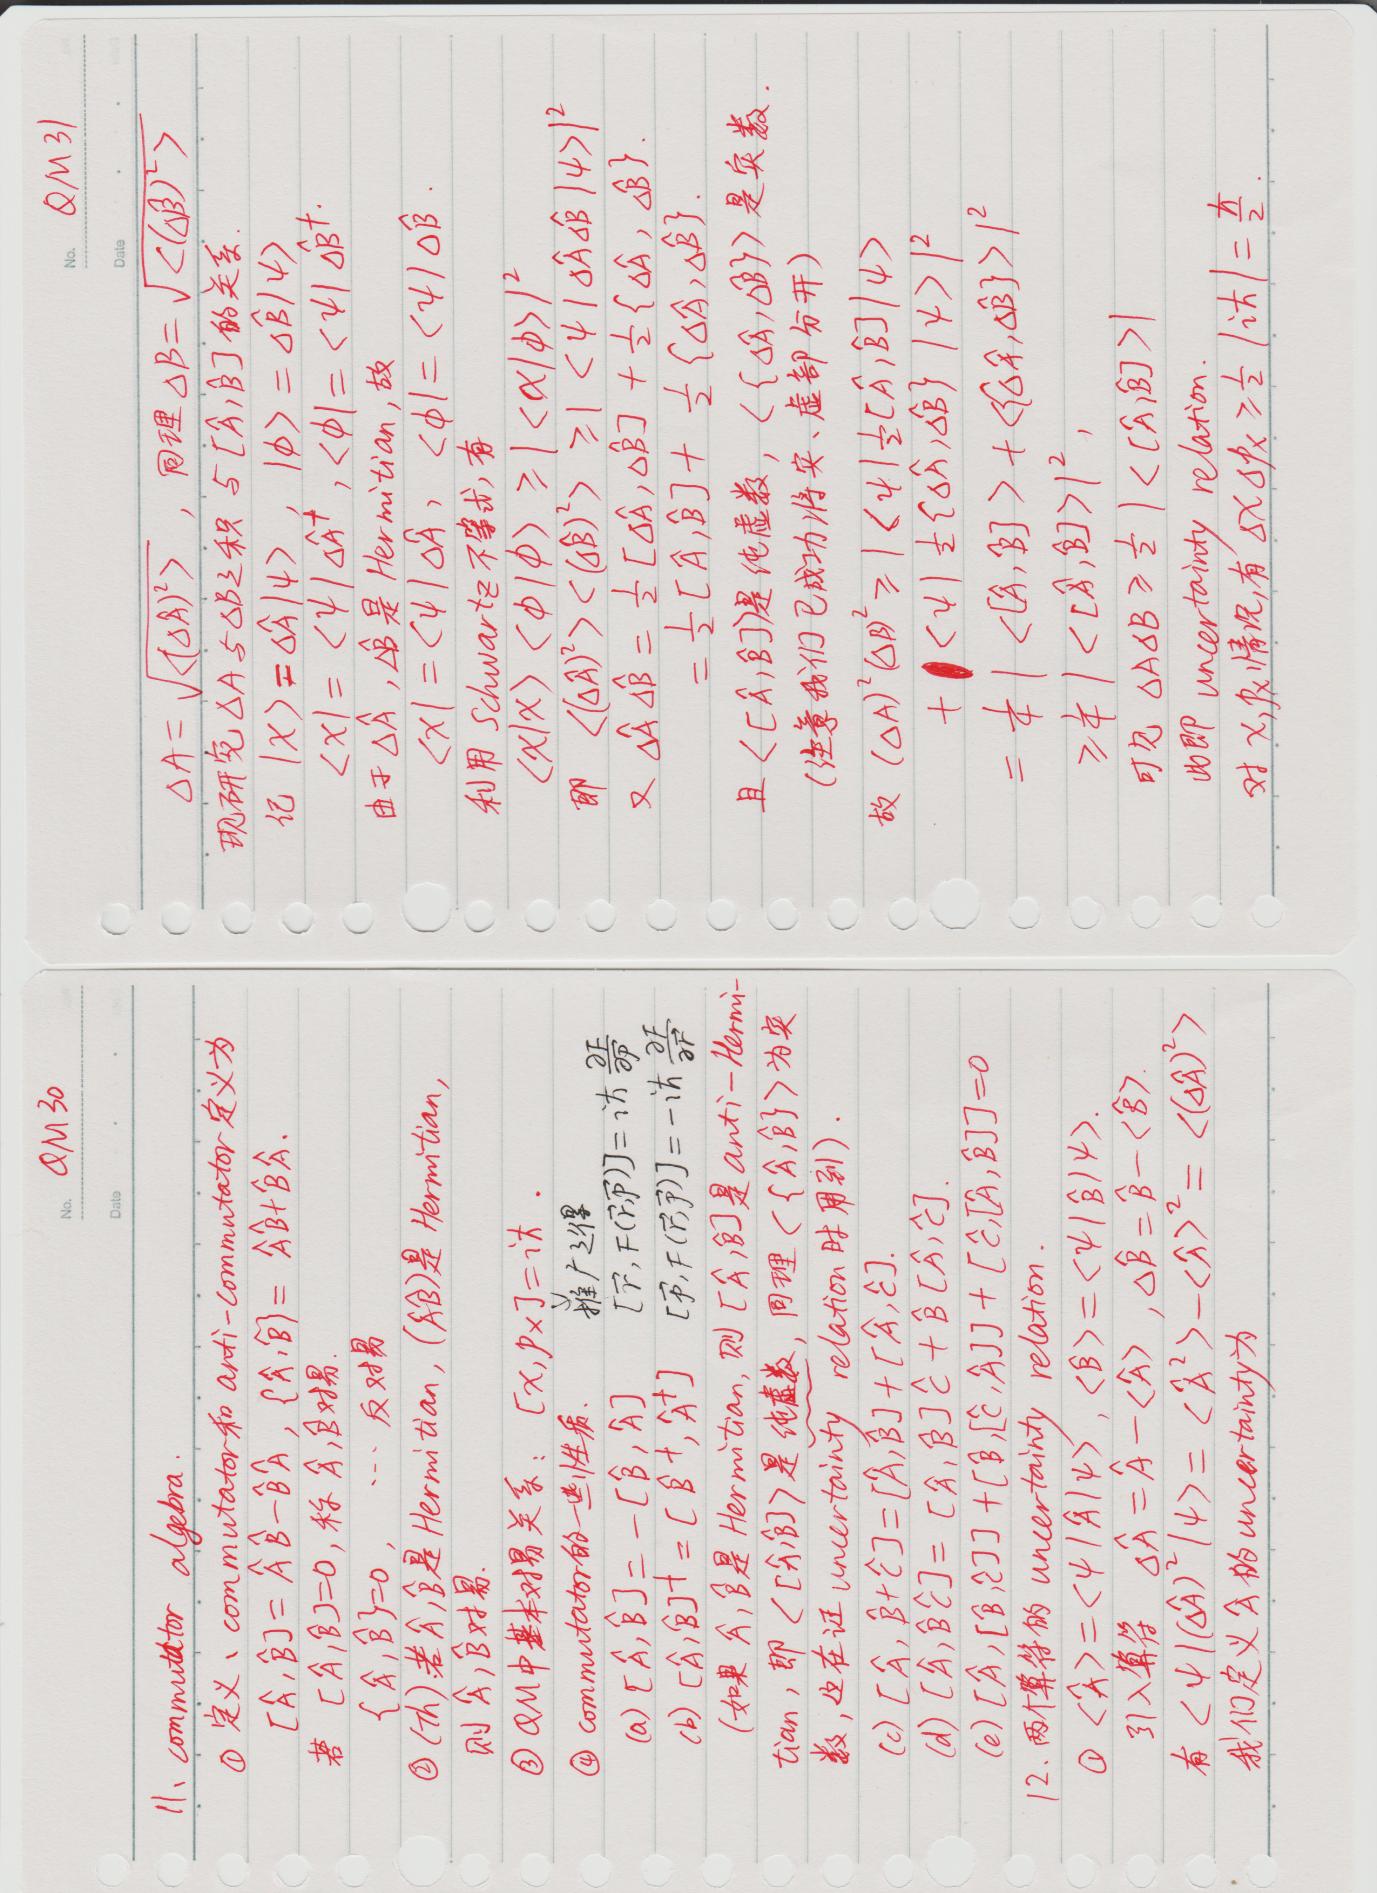 No. QM30
Date
11、commutator algebra.
① 定义、commutator和 anti-commutator 定义为
[Â,B̂]=ÂB̂-B̂Â, {Â,B̂}= ÂB̂+B̂Â.
若 [Â,B̂]=0, 称 Â,B̂对易.
{Â,B̂}=0, … 反对易
② (Th) 若Â,B̂是Hermitian, (ÂB̂)是 Hermitian,
则 Â,B̂对易.
③ QM中基本对易关系: [x,pₓ]=iħ.
④ commutator的一些性质. 推广之得
(a) [Â,B̂]=-[B̂,Â] [r⃗,F(r⃗,p⃗)]=iħ ∂F/∂p⃗
(b) [Â,B̂]†=[B̂†,Â†] [p⃗,F(r⃗,p⃗)]=-iħ ∂F/∂r⃗
(如果 Â,B̂是Hermitian, 则 [Â,B̂]是anti-Hermi-
tian, 即<[Â,B̂]>是纯虚数, 同理<{Â,B̂}>为实
数, 这在证 uncertainty relation 时用到).
(c) [Â,B̂+Ĉ]=[Â,B̂]+[Â,Ĉ].
(d) [Â,B̂Ĉ]= [Â,B̂]Ĉ+B̂[Â,Ĉ].
(e) [Â,[B̂,Ĉ]]+[B̂,[Ĉ,Â]]+[Ĉ,[Â,B̂]]=0
12. 两个算符的 uncertainty relation.
① <Â>=<ψ|Â|ψ>, <B̂>=<ψ|B̂|ψ>.
引入算符 ΔÂ=Â-<Â>, ΔB̂=B̂-<B̂>.
有 <ψ|(ΔÂ)²|ψ>= <Â²>-<Â>²= <(ΔÂ)²>
我们定义Â的uncertainty为
No. QM31
Date
ΔA=√<(ΔÂ)²>, 同理 ΔB=√<(ΔB̂)²>
现研究ΔA与ΔB之积 与[Â,B̂]的关系.
记 |χ>=ΔÂ|ψ>, |ϕ>=ΔB̂|ψ>
<χ|=<ψ|ΔÂ†, <ϕ|=<ψ|ΔB̂†.
由于ΔÂ, ΔB̂是Hermitian, 故
<χ|=<ψ|ΔÂ, <ϕ|=<ψ|ΔB̂.
利用 Schwartz不等式, 有
<χ|χ><ϕ|ϕ> ≥|<χ|ϕ>|²
即 <(ΔÂ)²><(ΔB̂)²> ≥|<ψ|ΔÂΔB̂|ψ>|²
又 ΔÂΔB̂=½[ΔÂ,ΔB̂]+½{ΔÂ,ΔB̂}.
=½[Â,B̂]+½{ΔÂ,ΔB̂}.
且<[Â,B̂]>是纯虚数, <{ΔÂ,ΔB̂}>是实数.
(注意我们已成功将实、虚部分开)
故 (ΔA)²(ΔB)²≥|<ψ|½[Â,B̂]|ψ>
+<ψ|½{ΔÂ,ΔB̂}|ψ>|²
=¼|<[Â,B̂]>+<{ΔÂ,ΔB̂}>|²
≥¼|<[Â,B̂]>|²,
可见 ΔAΔB≥½|<[Â,B̂]>|
此即 uncertainty relation.
对 x,pₓ情况, 有 ΔxΔpₓ≥½|iħ|=ħ/2.